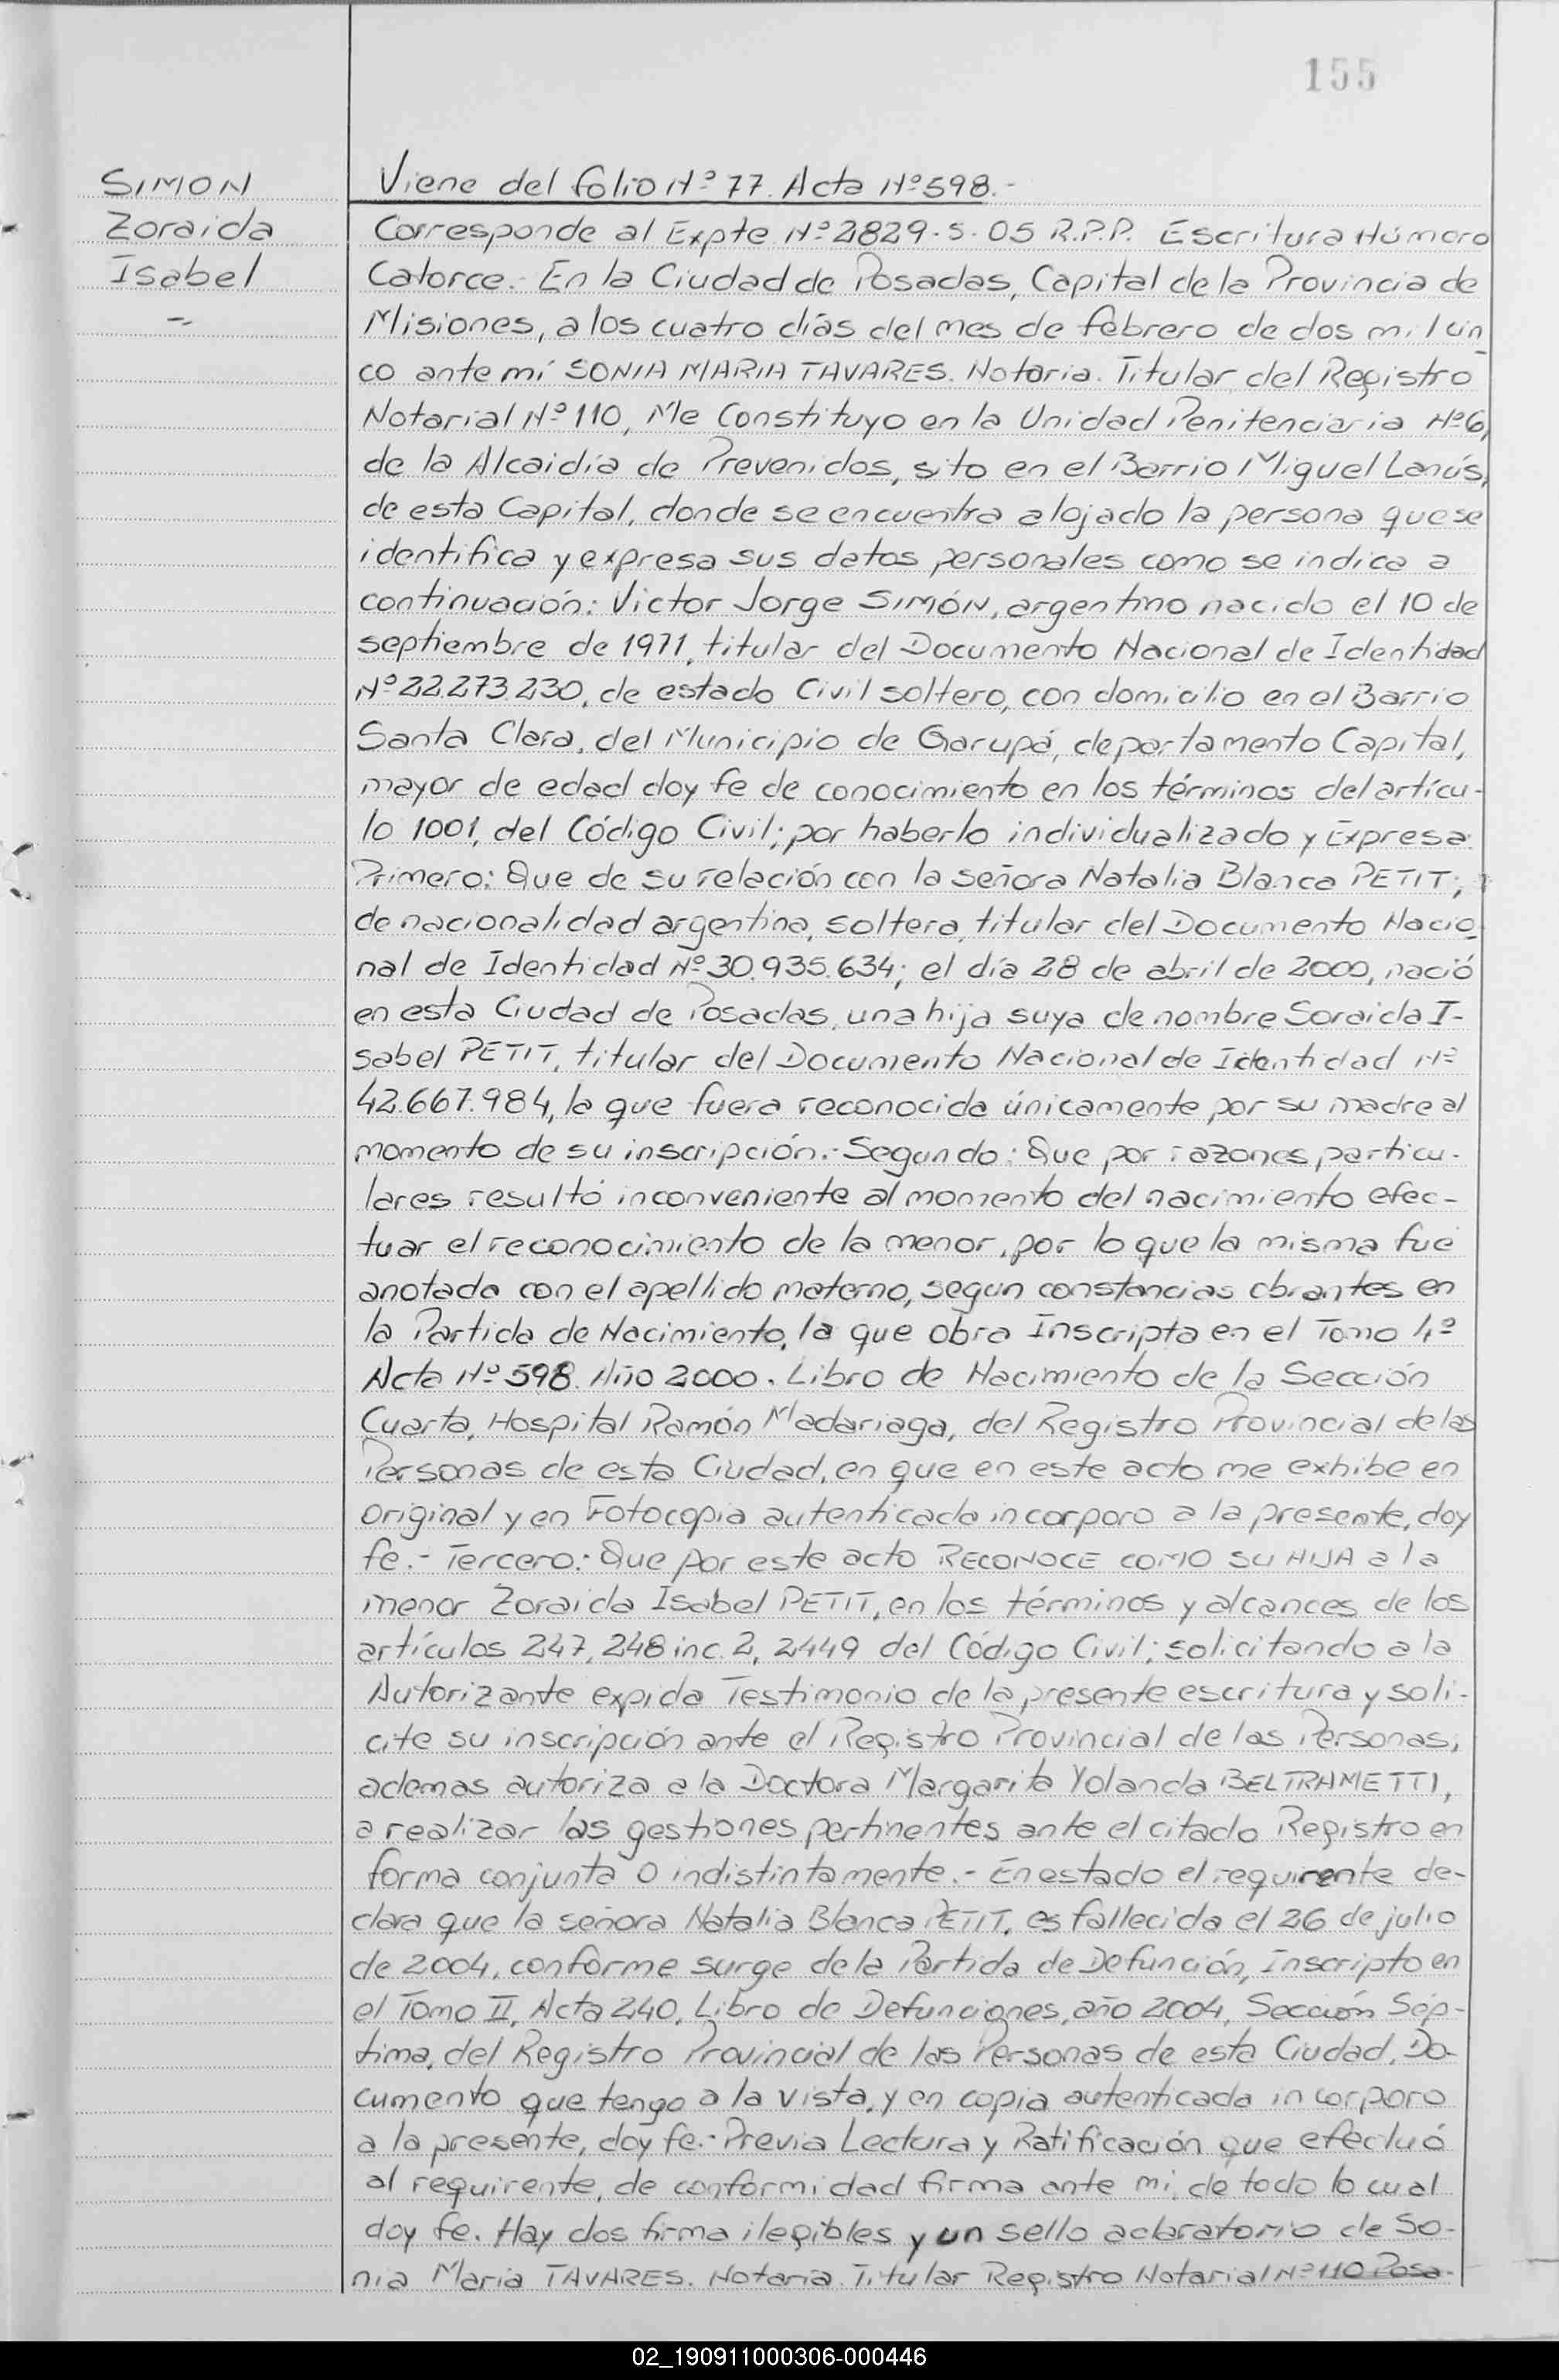 155
SIMON
Zoraida
Isabel
-.
Viene del folio Nº 77. Acta Nº 598.-
Corresponde al Expte Nº 2829-S-05 R.P.P. Escritura Número
Catorce.- En la Ciudad de Posadas, Capital de la Provincia de
Misiones, a los cuatro días del mes de febrero de dos mil cin
co ante mí SONIA MARIA TAVARES. Notaria. Titular del Registro
Notarial Nº 110, Me Constituyo en la Unidad Penitenciaria Nº 6,
de la Alcaidía de Prevenidos, sito en el Barrio Miguel Lanús,
de esta Capital, donde se encuentra alojado la persona que se
identifica y expresa sus datos personales como se indica a
continuación: Victor Jorge SIMÓN, argentino nacido el 10 de
septiembre de 1971, titular del Documento Nacional de Identidad
Nº 22.273.230, de estado Civil soltero, con domicilio en el Barrio
Santa Clara, del Municipio de Garupá, departamento Capital,
mayor de edad doy fe de conocimiento en los términos del artícu-
lo 1001, del Código Civil; por haberlo individualizado y Expresa:
Primero: Que de su relación con la señora Natalia Blanca PETIT;
de nacionalidad argentina, soltera, titular del Documento Nacio
nal de Identidad Nº 30.935.634; el día 28 de abril de 2000, nació
en esta Ciudad de Posadas, una hija suya de nombre Soraida I-
sabel PETIT, titular del Documento Nacional de Identidad Nº
42.667.984, la que fuera reconocida únicamente por su madre al
momento de su inscripción.- Segundo: Que por razones particu-
lares resultó inconveniente al momento del nacimiento efec-
tuar el reconocimiento de la menor, por lo que la misma fue
anotada con el apellido materno, segun constancias obrantes en
la Partida de Nacimiento, la que obra Inscripta en el Tomo 4º
Acta Nº 598. Año 2000. Libro de Nacimiento de la Sección
Cuarta, Hospital Ramón Madariaga, del Registro Provincial de las
Personas de esta Ciudad, en que en este acto me exhibe en
original y en Fotocopia autenticada incorporo a la presente, doy
fe.- Tercero: Que por este acto RECONOCE COMO SU HIJA a la
menor Zoraida Isabel PETIT, en los términos y alcances de los
artículos 247, 248 inc. 2, 2449 del Código Civil; solicitando a la
Autorizante expida Testimonio de la presente escritura y soli-
cite su inscripción ante el Registro Provincial de las Personas;
ademas autoriza a la Doctora Margarita Yolanda BELTRAMETTI,
a realizar las gestiones pertinentes ante el citado Registro en
forma conjunta O indistintamente.- En estado el requirente de-
clara que la señora Natalia Blanca PETIT, es fallecida el 26 de julio
de 2004, conforme surge de la Partida de Defunción, Inscripto en
el Tomo II, Acta 240, Libro de Defunciones, año 2004, Sección Sép-
tima, del Registro Provincial de las Personas de esta Ciudad, Do-
cumento que tengo a la vista, y en copia autenticada incorporo
a la presente, doy fe.- Previa Lectura y Ratificación que efectuó
al requirente, de conformidad firma ante mi, de todo lo cual
doy fe. Hay dos firma ilegibles y un sello aclaratorio de So-
nia Maria TAVARES. Notaria. Titular Registro Notarial Nº 110 Posa-
02_190911000306-000446